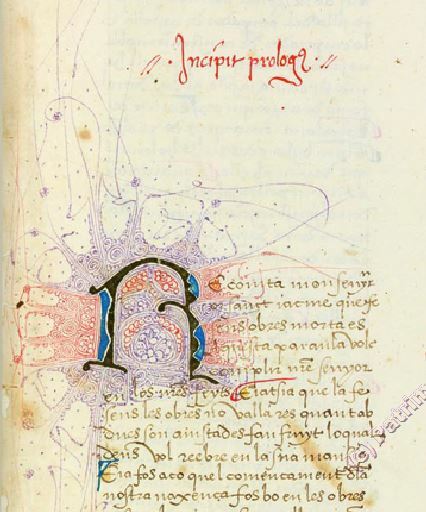 ·Incipit prolog9·
Recomta mon senyr
sant iacme que fe
sens obres morta es
aquesta paraula vole
complir nre senyor
en los nres feyts E iatsia que la fe
sens les obres no valla res quant ab
dues son aiustades fan fruyt loquale
deus vol reebre en la sua
E ia fos aço quel començament dla
nostra naxença fos bo en les obres